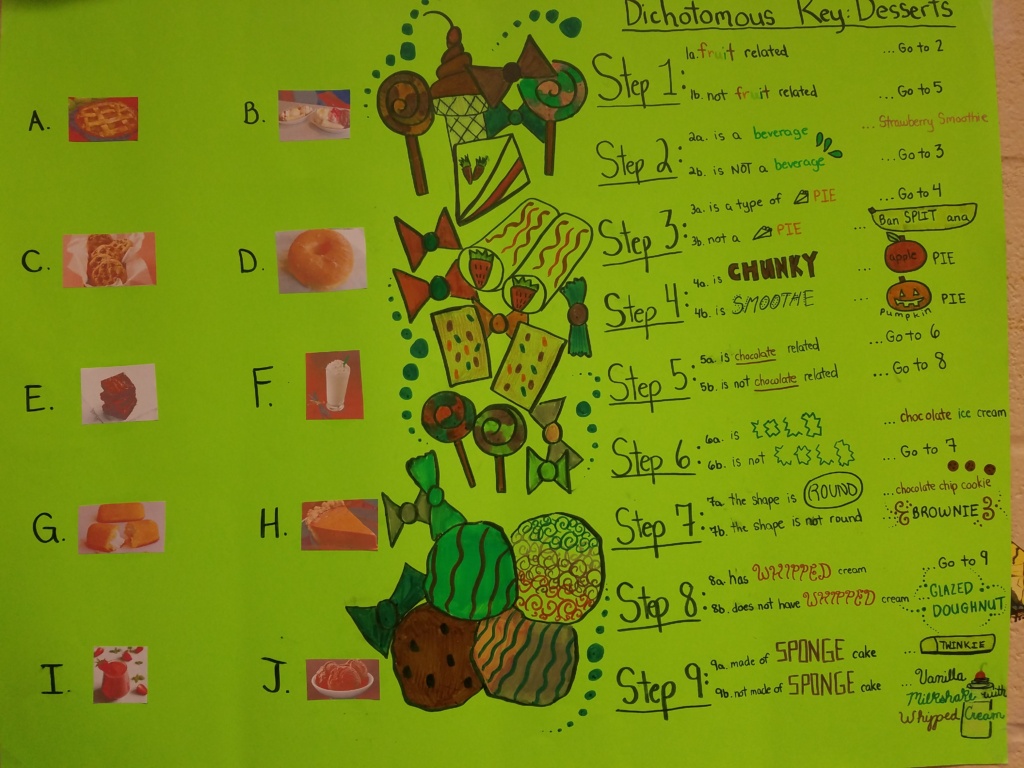 Dichotomous Key: Desserts
A.
B.
C.
D.
E.
F.
G.
H.
I.
J.
Step 1:
1a. fruit related ... Go to 2
1b. not fruit related ... Go to 5
Step 2:
2a. is a beverage ... Strawberry Smoothie
2b. is NOT a beverage ... Go to 3
Step 3:
3a. is a type of PIE ... Go to 4
3b. not a PIE ... Ban SPLIT ana
Step 4:
4a. is CHUNKY ... apple PIE
4b. is SMOOTHE ... Pumpkin PIE
Step 5:
5a. is chocolate related ... Go to 6
5b. is not chocolate related ... Go to 8
Step 6:
6a. is ... chocolate ice cream
6b. is not ... Go to 7
Step 7:
7a. the shape is ROUND ... chocolate chip cookie
7b. the shape is not round BROWNIE
Step 8:
8a. has WHIPPED cream ... Go to 9
8b. does not have WHIPPED cream GLAZED DOUGHNUT
Step 9:
9a. made of SPONGE cake ... TWINKIE
9b. not made of SPONGE cake ... Vanilla
Milkshake with
Whipped Cream